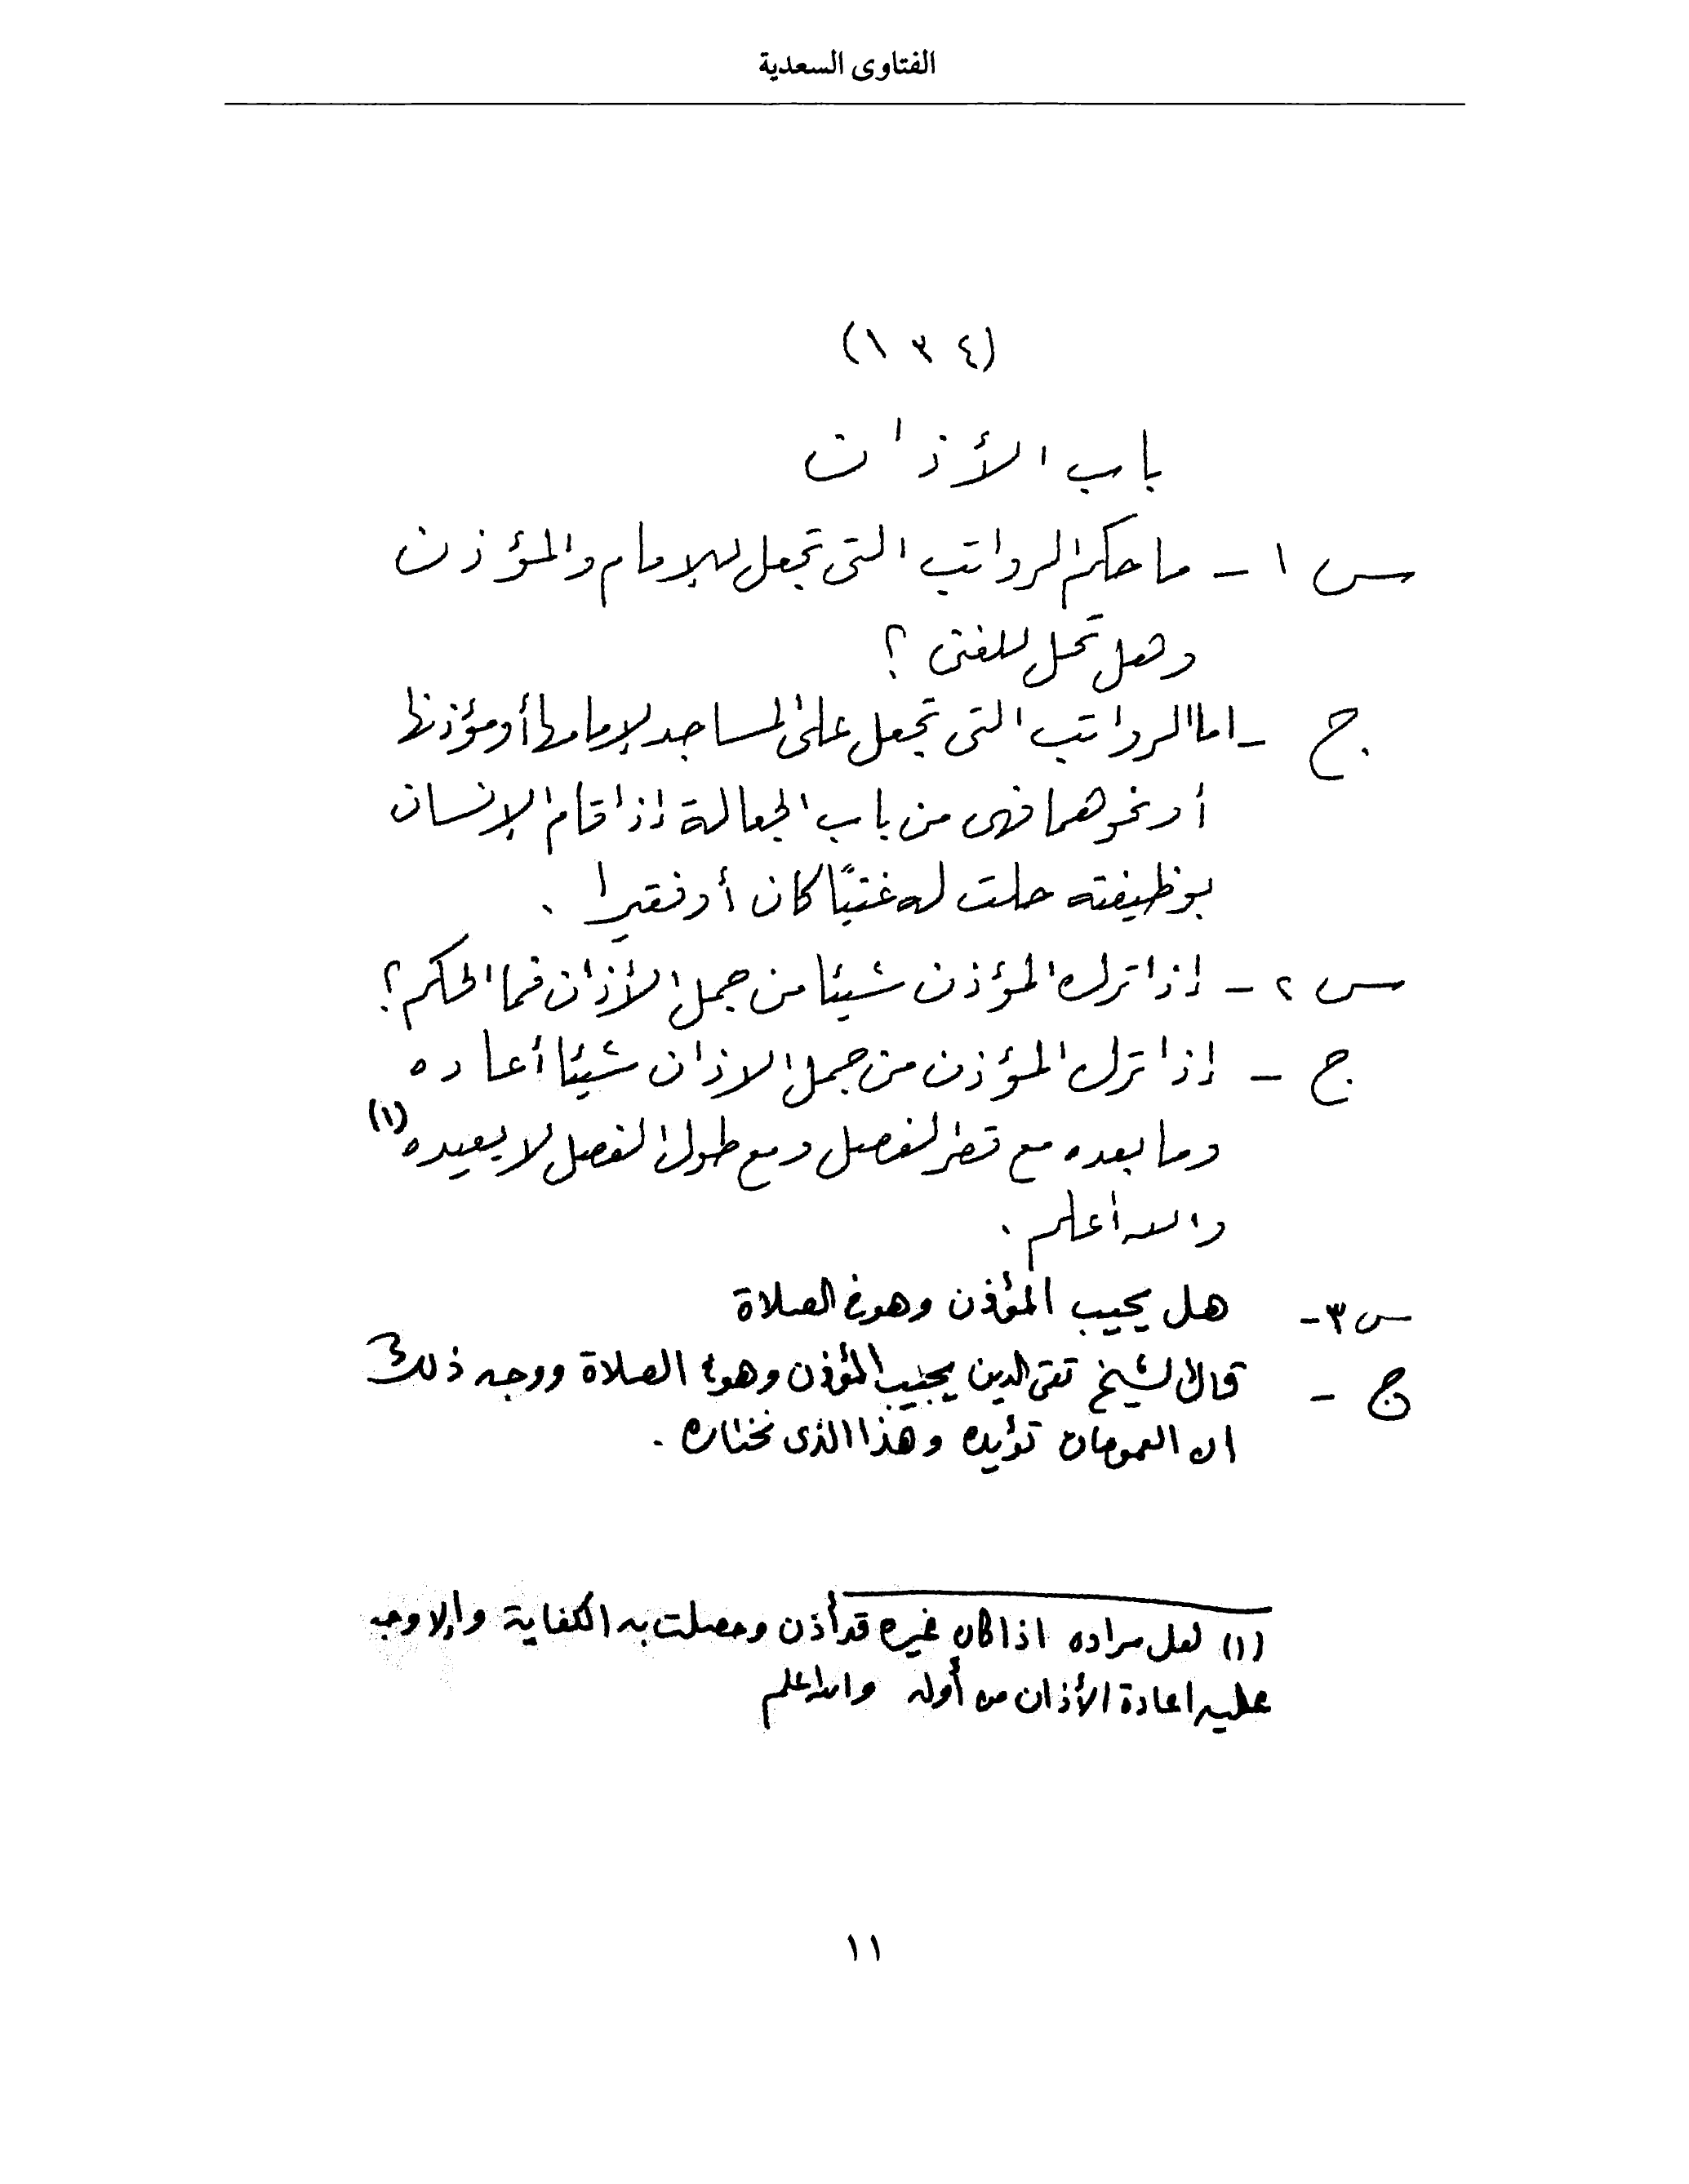 الفتاوى السعدية
(١٣٤)
باب الأذان
س ١ - ما حكم الرواتب التى تجعل للإمام والمؤذن
وهل تحل للغنى ؟
ج - اما الرواتب التى تجعل على المساجد لإمامها أو مؤذنها
أو نحوهما فهى من باب الجعالة إذا قام الإنسان
بوظيفته حلت له غنيًا كان أو فقيرا .
س ٢ - إذا ترك المؤذن شيئا من جمل الأذان فما الحكم ؟
ج - إذا ترك المؤذن من جمل الاذان شيئا أعاده
وما بعده مع قصر الفصل ومع طول الفصل لا يعيده (١)
والله أعلم .
س ٣ - هل يجيب المؤذن وهو فى الصلاة
ج - قال الشيخ تقى الدين يجيب المؤذن وهو فى الصلاة ووجه ذلك
ان العمومات تؤيده وهذا الذى نختاره .
(١) لعل مراده اذا كان غيره قد أذن وحصلت به الكفاية وإلا وجب
عليه اعادة الأذان من أوله والله اعلم
١١